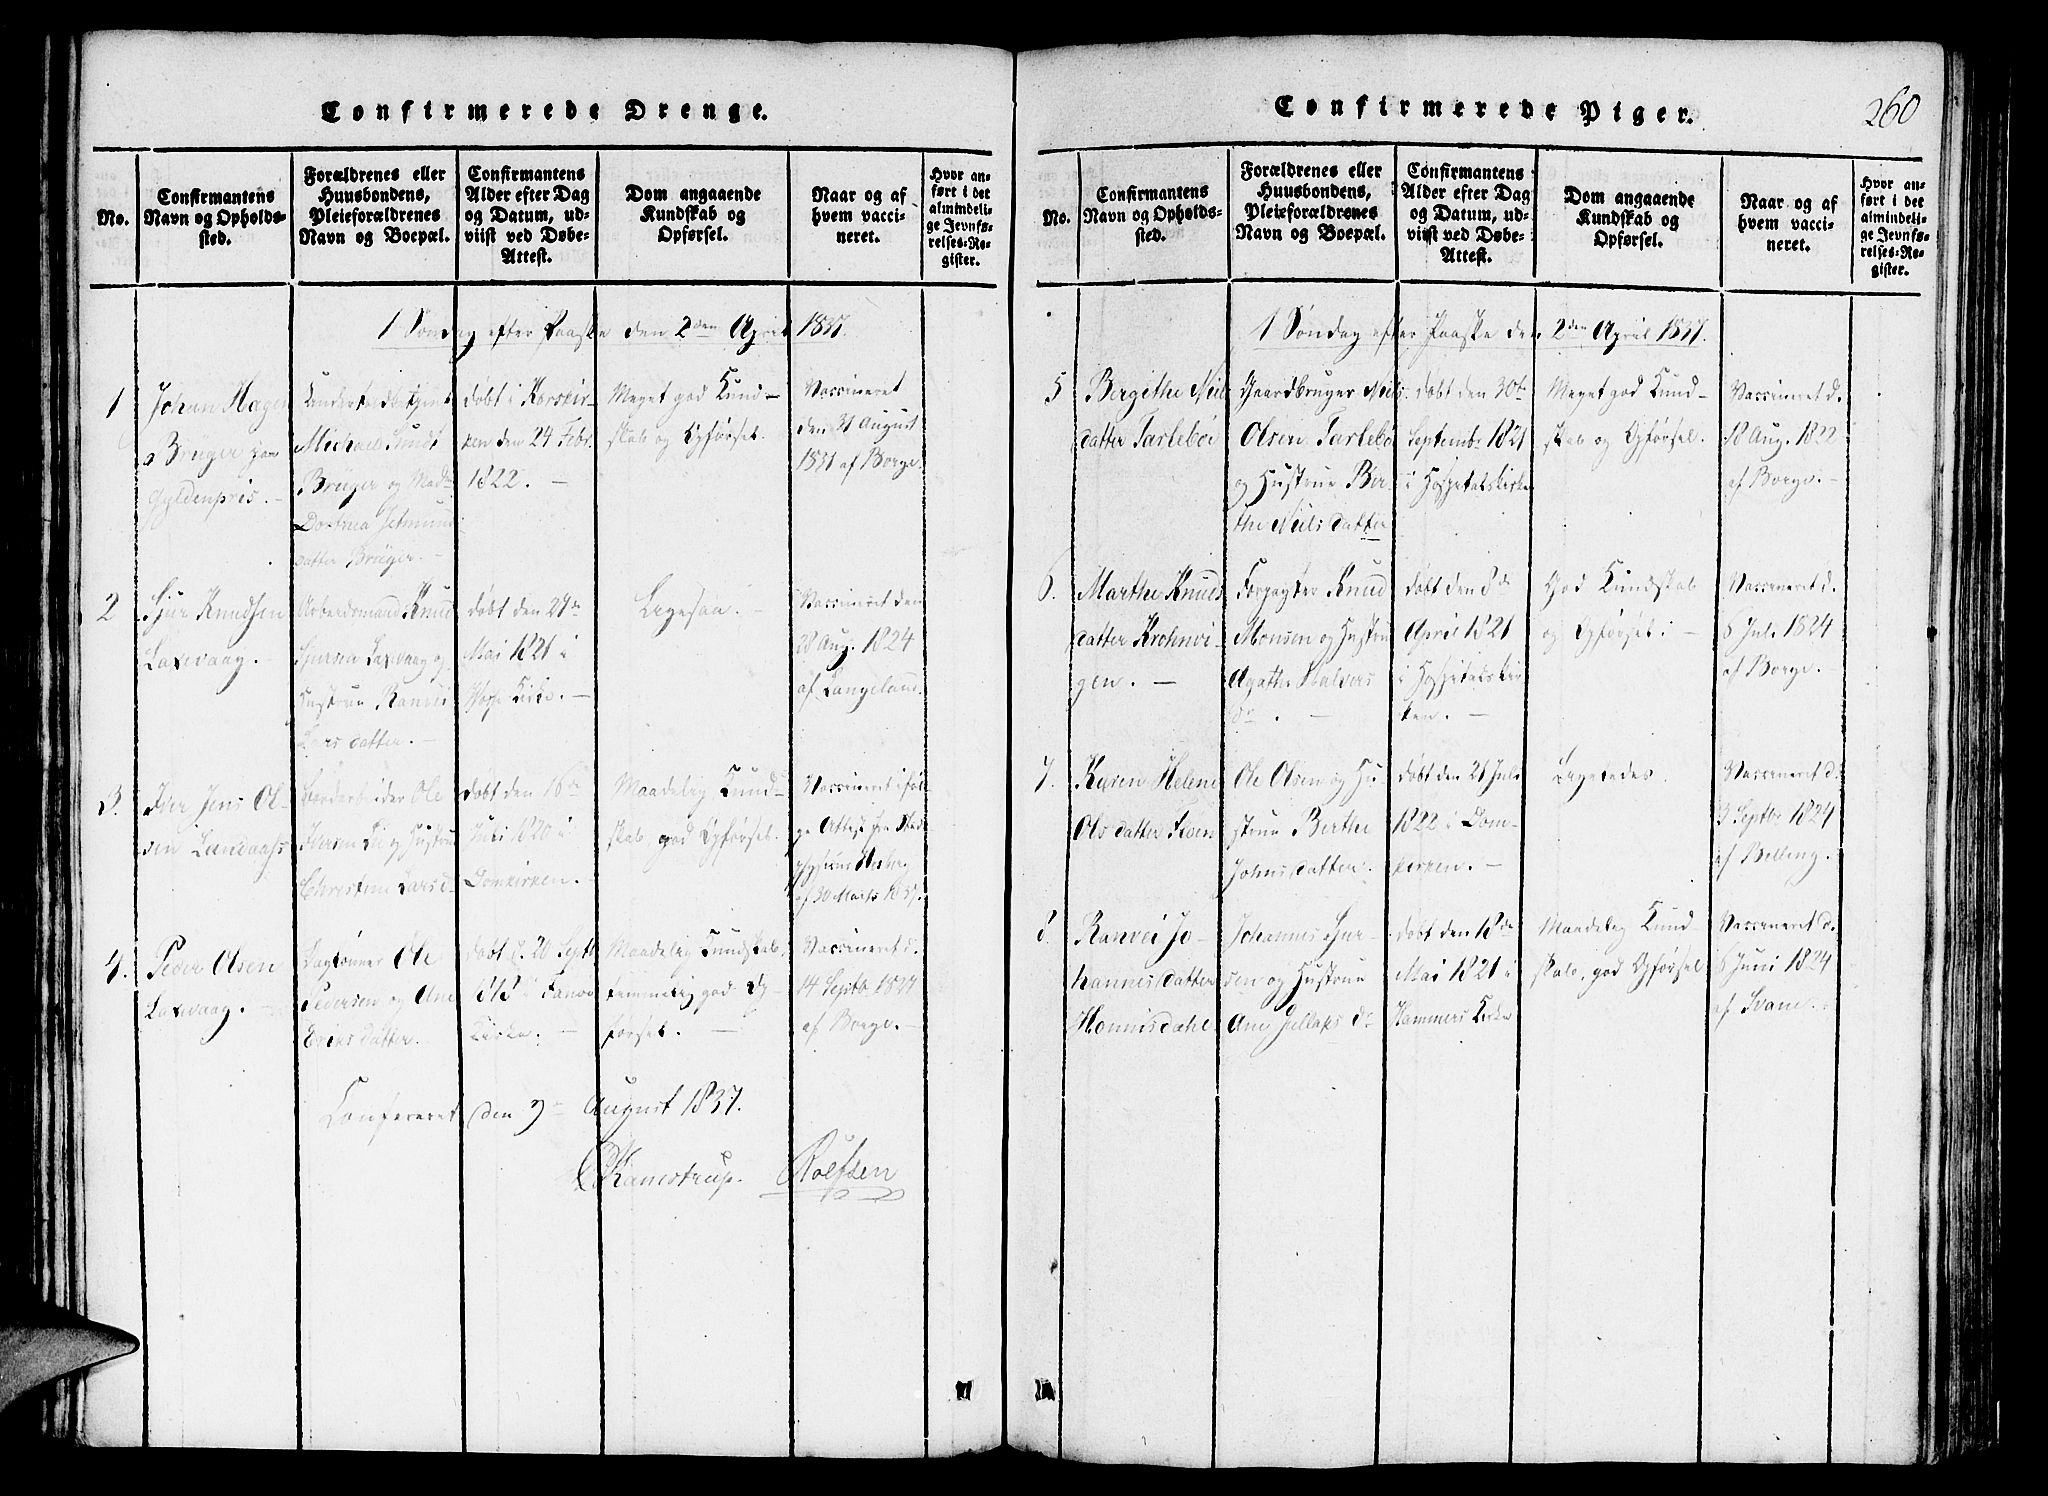 Confirmerede Drenge.
No.
Confirmantens
Navn og Opholds-
sted.
Forældrenes eller
Huusbondens,
Pleieforældrenes
Navn og Boepæl.
Confirmantens
Alder efter Dag
og Datum, ud-
viist ved Døbe-
Attest.
Dom angaaende
Kundskab og
Opførsel.
Naar og af
hvem vacci-
neret.
Hvor an-
ført i det
almindeli-
ge Jevnfø-
relses-Re-
gister.
1 Søndag efter Paaske den 2den April 1837.
1
Johan Hagen
Brüger paa
Gyldenpris.
Michael Sundt
Brüger og Mad.
Dorthea
datter Brüger.
døbt i Korskir-
ken den 24 Febr.
1822.
Meget god Kund-
skab og Opførsel.
Vaccineret
den 31 August
1831 af Borge.
2
Sjur Knudsen
Laxevaag.
Arbeidsmand Knud
Sjursen Laxevaag og
Hustrue Ranvei
Lars datter.
døbt den 29de
Mai 1821 i
Kirke.
Ligesaa.
Vaccineret den
28 Aug. 1824
af Langeland.
3.
Iver Jens Ol-
sen
Ole
Iversen og Hustrue
Christine Larsd.
døbt den 16de
Juli 1820 i
Domkirken.
Maadelig Kund-
skab, god Opførsel.
Vaccineret iføl-
ge Attest fra
af 30 Marts 1837.
4.
Peder Olsen
Laxevaag.
Daglønner Ole
Pedersen og Ane
Eriks datter.
døbt d. 20 Septb
i Fanøe
Kirke.
Maadelig Kundskab,
temmelig god Op-
førsel.
Vaccineret d.
14 Septbr. 1827
af Borge.
Confereret den 9de August 1837.
Kamstrup. Rolfsen
Confirmerede Piger.
260
No.
Confirmantens
Navn og Opholds-
sted.
Forældrenes eller
Huusbondens,
Pleieforældrenes
Navn og Boepæl.
Confirmantens
Alder efter Dag
og Datum, ud-
viist ved Døbe-
Attest.
Dom angaaende
Kundskab og
Opførsel.
Naar og af
hvem vacci-
neret.
Hvor an-
ført i det
almindeli-
ge Jevnfø-
relses-Re-
gister.
1 Søndag efter Paaske den 2den April 1837.
5
Bergithe Nils
datter Tarlebøe
Gaardbruger Niels
Olsen Tarlebø
og Hustrue Ber
the Neils datter
døbt den 30te
September 1821
i Hospitals kirke
Meget god Kund-
skab og Opførsel.
Vaccineret d.
18 Aug. 1822
af Borge.
6.
Marthe Knuds
datter Krohnvi-
gen.
Forpagter Knud
Monsen og Hustrue
Agathe Halvors
dr.
døbt den 8de
April 1821
i Hospitalskir
ken.
God Kundskab
og Opførsel.
Vaccineret d.
8 Jul. 1824
af Borge.
7.
Karen Helene
Ols datter
Ole Olsen og Hu-
strue Berthe
Johns datter.
døbt den 21 Juli
1822 i Dom-
kirken.
Ligeledes.
Vaccineret d.
3 Septbr 1824
af Belling.
8.
Ranvei Jo-
hannes datter
Hennisdahl.
Johannes Sjur-
sen og Hustrue
Ane Jellafs dr
døbt den 13de
Mai 1821 i
Hammers Kirke
Maadelig Kund
skab, god Opførsel
Vaccineret d.
8 Juni 1824
af Svane.